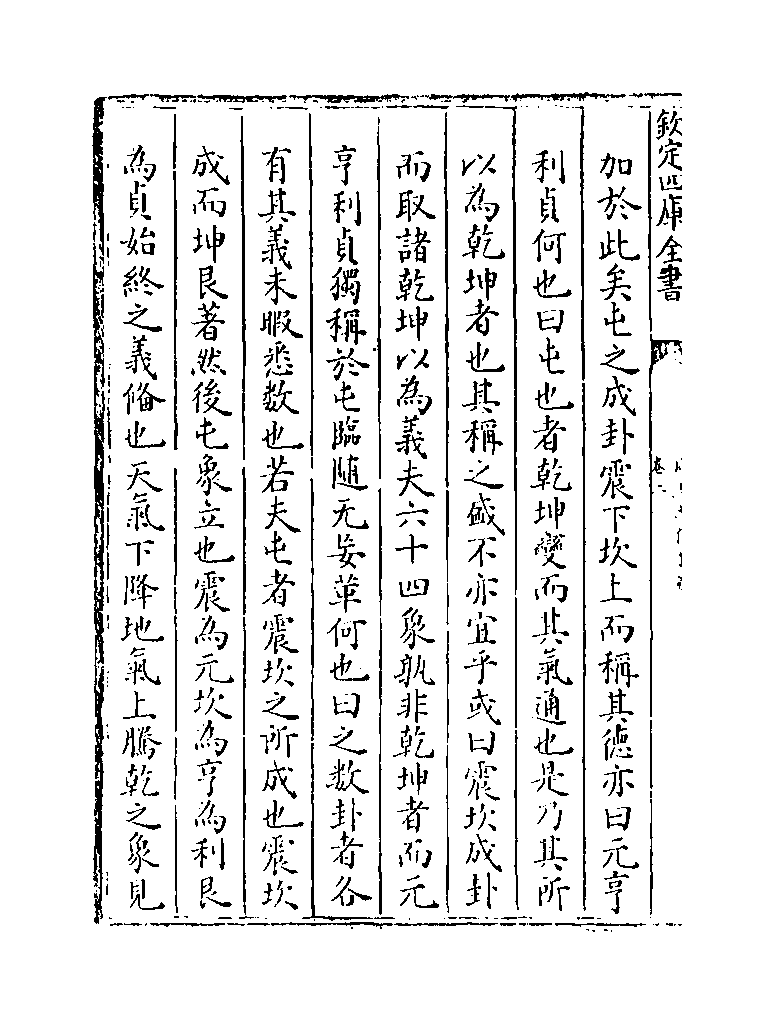 欽定四庫全書
加於此矣屯之成卦震下坎上而稱其德亦曰元亨
利貞何也曰屯也者乾坤變而其氣通也是乃其所
以為乾坤者也其稱之盛不亦宜乎或曰震坎成卦
而取諸乾坤以為義夫六十四象孰非乾坤者而元
亨利貞獨稱於屯臨随无妄革何也曰之数卦者各
有其義未暇悉数也若夫屯者震坎之所成也震坎
成而坤艮著然後屯象立也震為元坎為亨為利艮
為貞始終之義俻也天氣下降地氣上騰乾之象見